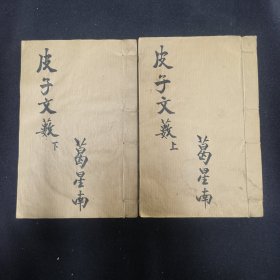 皮子文薮
上
葛星南
皮子文薮
下
葛星南